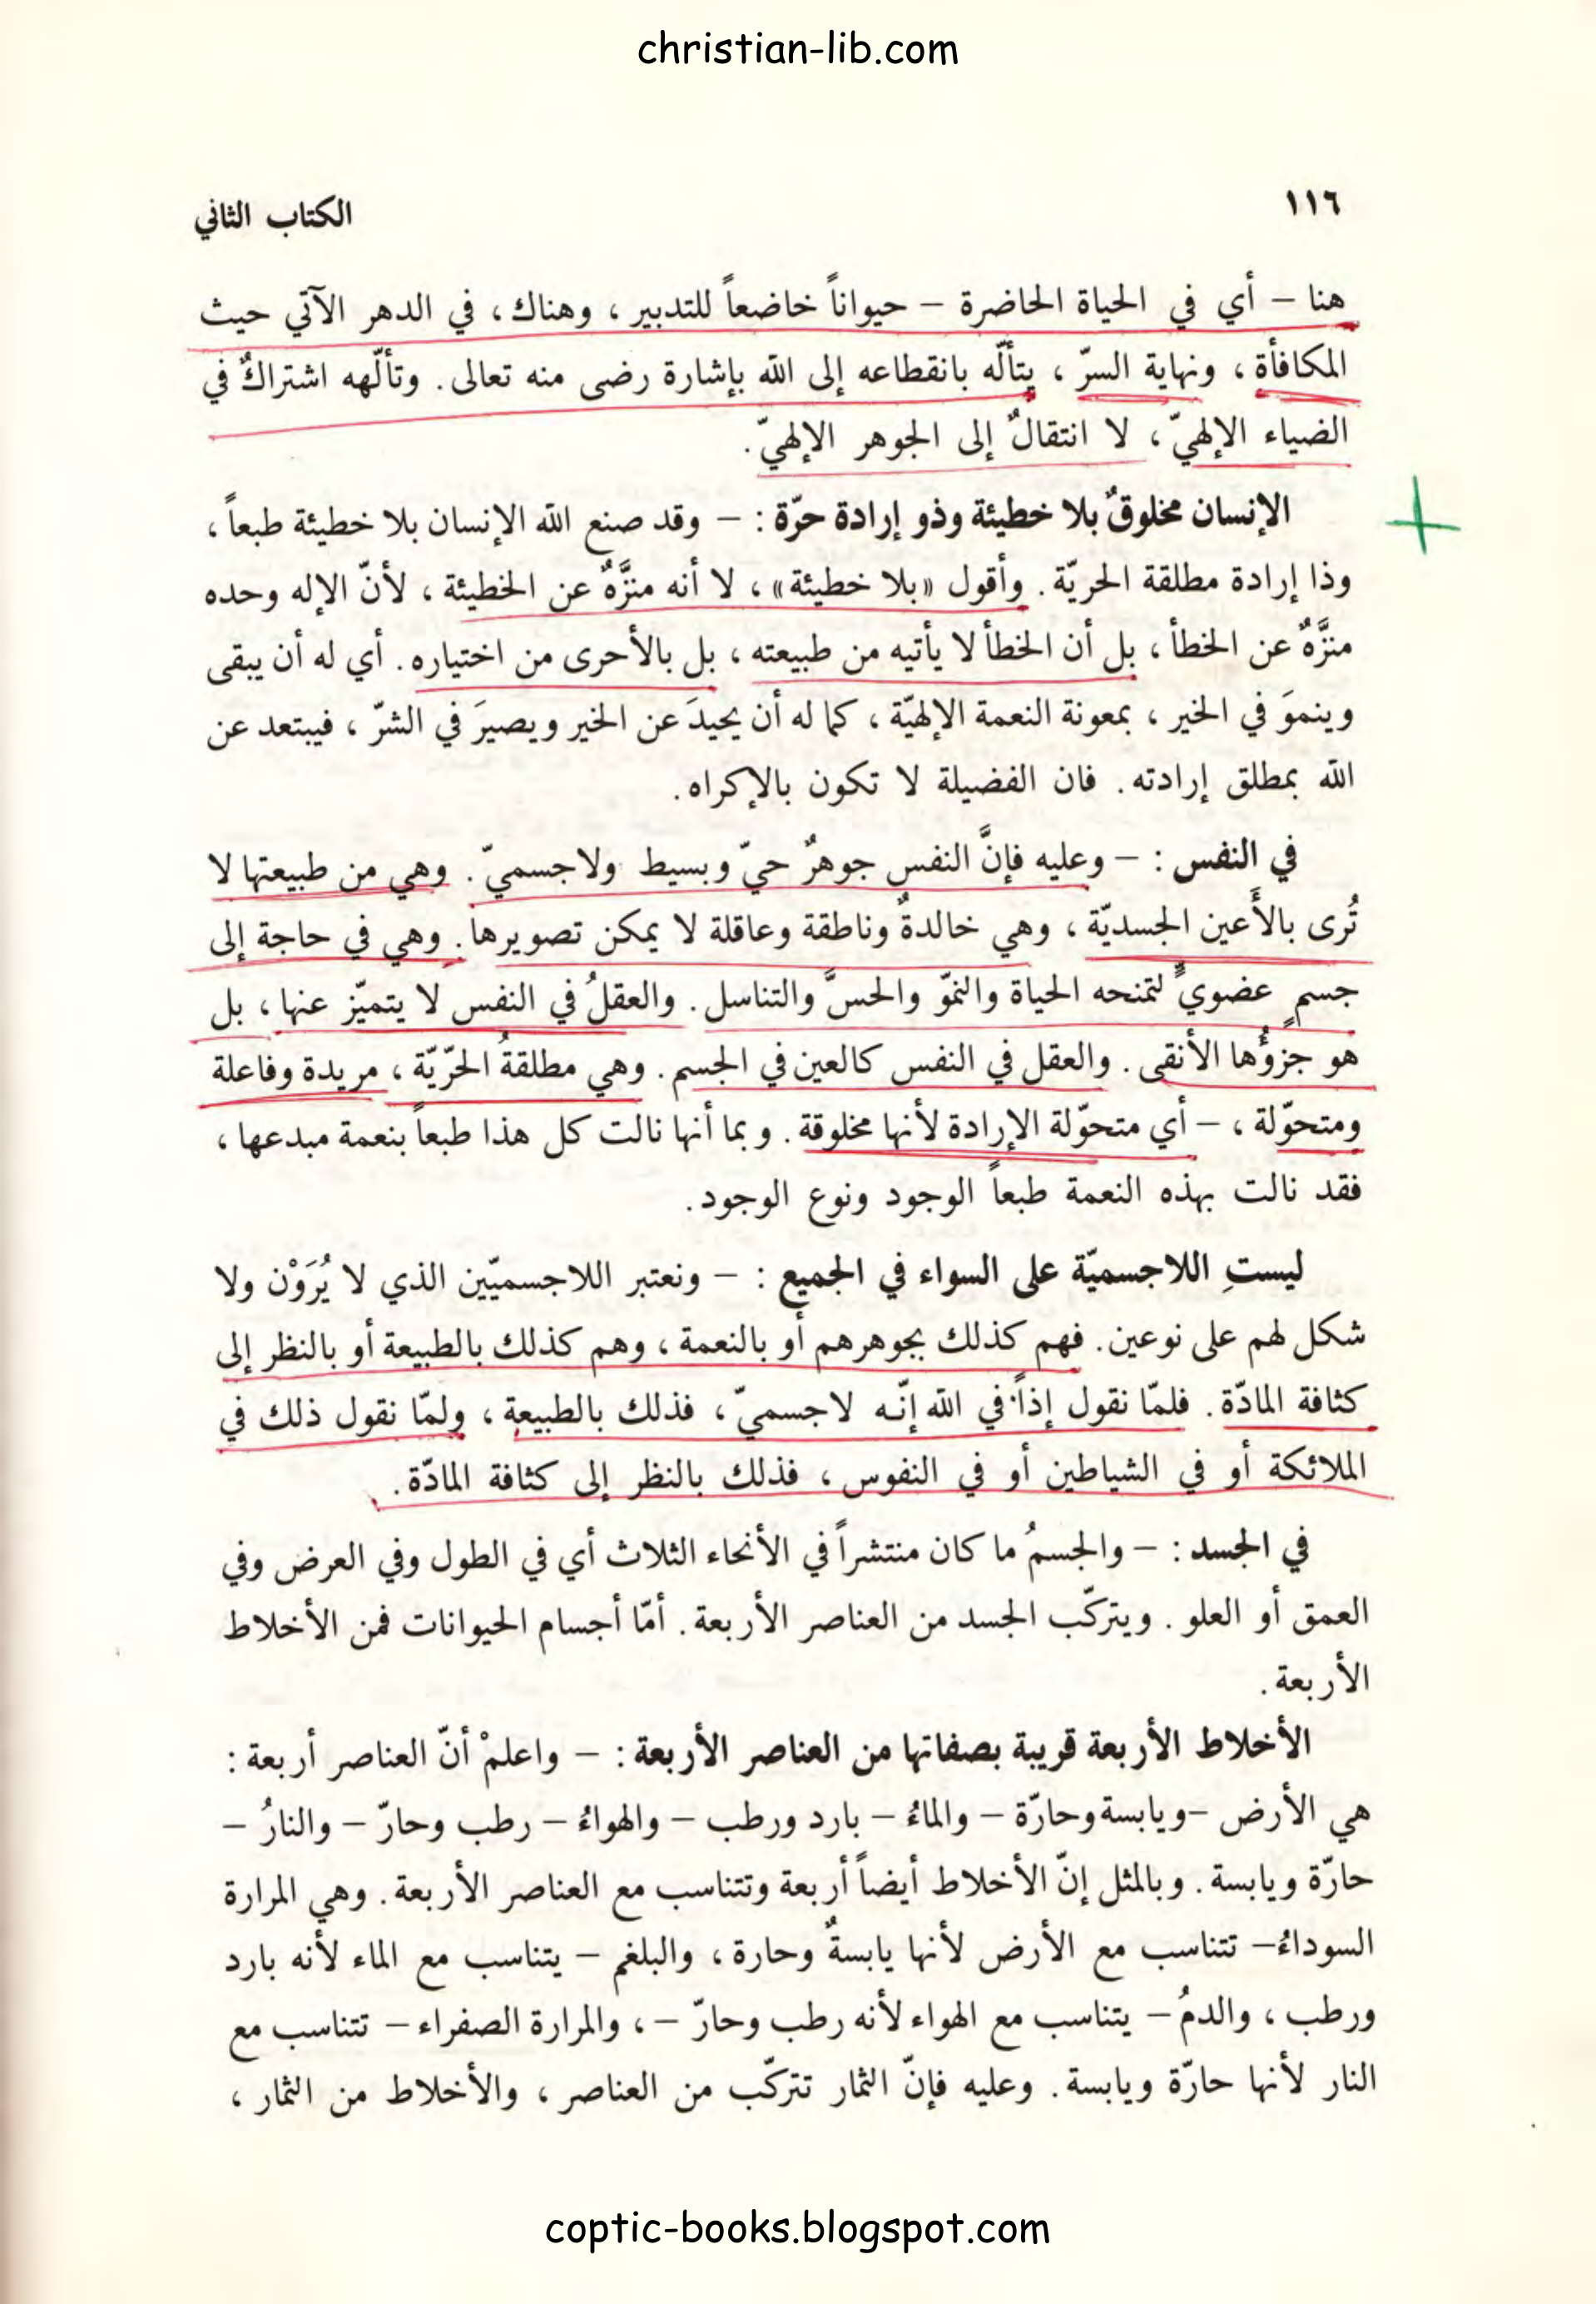 christian-lib.com
١١٦
الكتاب الثاني
هنا – أي في الحياة الحاضرة – حيواناً خاضعاً للتدبير ، وهناك ، في الدهر الآتي حيث
المكافأة ، ونهاية السرّ ، يتألّه بانقطاعه إلى الله بإشارة رضى منه تعالى . وتألّهه اشتراكٌ في
الضياء الإلهيّ ، لا انتقالٌ إلى الجوهر الإلهيّ .
الإنسان مخلوقٌ بلا خطيئة وذو إرادة حرّة : – وقد صنع الله الإنسان بلا خطيئة طبعاً ،
وذا إرادة مطلقة الحريّة . وأقول «بلا خطيئة» ، لا أنه منزَّهٌ عن الخطيئة ، لأنّ الإله وحده
منزَّهٌ عن الخطأ ، بل أن الخطأ لا يأتيه من طبيعته ، بل بالأحرى من اختياره . أي له أن يبقى
وينموَ في الخير ، بمعونة النعمة الإلهيّة ، كما له أن يحيدَ عن الخير ويصيرَ في الشرّ ، فيبتعد عن
الله بمطلق إرادته . فان الفضيلة لا تكون بالإكراه .
في النفس : – وعليه فإنَّ النفس جوهرٌ حيّ وبسيط ولاجسميّ . وهي من طبيعتها لا
تُرى بالأَعين الجسديّة ، وهي خالدةٌ وناطقة وعاقلة لا يمكن تصويرها . وهي في حاجة إلى
جسمٍ عضويٍّ لتمنحه الحياة والنموّ والحسَّ والتناسل . والعقلُ في النفس لا يتميّز عنها ، بل
هو جزؤُها الأنقى . والعقل في النفس كالعين في الجسم . وهي مطلقةُ الحرّيّة ، مريدة وفاعلة
ومتحوّلة ، – أي متحوّلة الإرادة لأنها مخلوقة . وبما أنها نالت كل هذا طبعاً بنعمة مبدعها ،
فقد نالت بهذه النعمة طبعاً الوجود ونوع الوجود .
ليستِ اللاجسميّة على السواء في الجميع : – ونعتبر اللاجسميّين الذي لا يُرَوْن ولا
شكل لهم على نوعين . فهم كذلك بجوهرهم أو بالنعمة ، وهم كذلك بالطبيعة أو بالنظر إلى
كثافة المادّة . فلمّا نقول إذاً في الله إنّه لاجسميّ ، فذلك بالطبيعة ، ولمّا نقول ذلك في
الملائكة أو في الشياطين أو في النفوس ، فذلك بالنظر إلى كثافة المادّة .
في الجسد : – والجسمُ ما كان منتشراً في الأنحاء الثلاث أي في الطول وفي العرض وفي
العمق أو العلو . ويتركّب الجسد من العناصر الأربعة . أمّا أجسام الحيوانات فمن الأخلاط
الأربعة .
الأخلاط الأربعة قريبة بصفاتها من العناصر الأربعة : – واعلمْ أنّ العناصر أربعة :
هي الأرض –ويابسة وحارّة – والماءُ – بارد ورطب – والهواءُ – رطب وحارّ – والنارُ –
حارّة ويابسة . وبالمثل إنّ الأخلاط أيضاً أربعة وتتناسب مع العناصر الأربعة . وهي المرارة
السوداءُ– تتناسب مع الأرض لأنها يابسةٌ وحارة ، والبلغم – يتناسب مع الماء لأنه بارد
ورطب ، والدمُ – يتناسب مع الهواء لأنه رطب وحارّ – ، والمرارة الصفراء – تتناسب مع
النار لأنها حارّة ويابسة . وعليه فإنّ الثمار تتركّب من العناصر ، والأخلاط من الثمار ،
coptic-books.blogspot.com